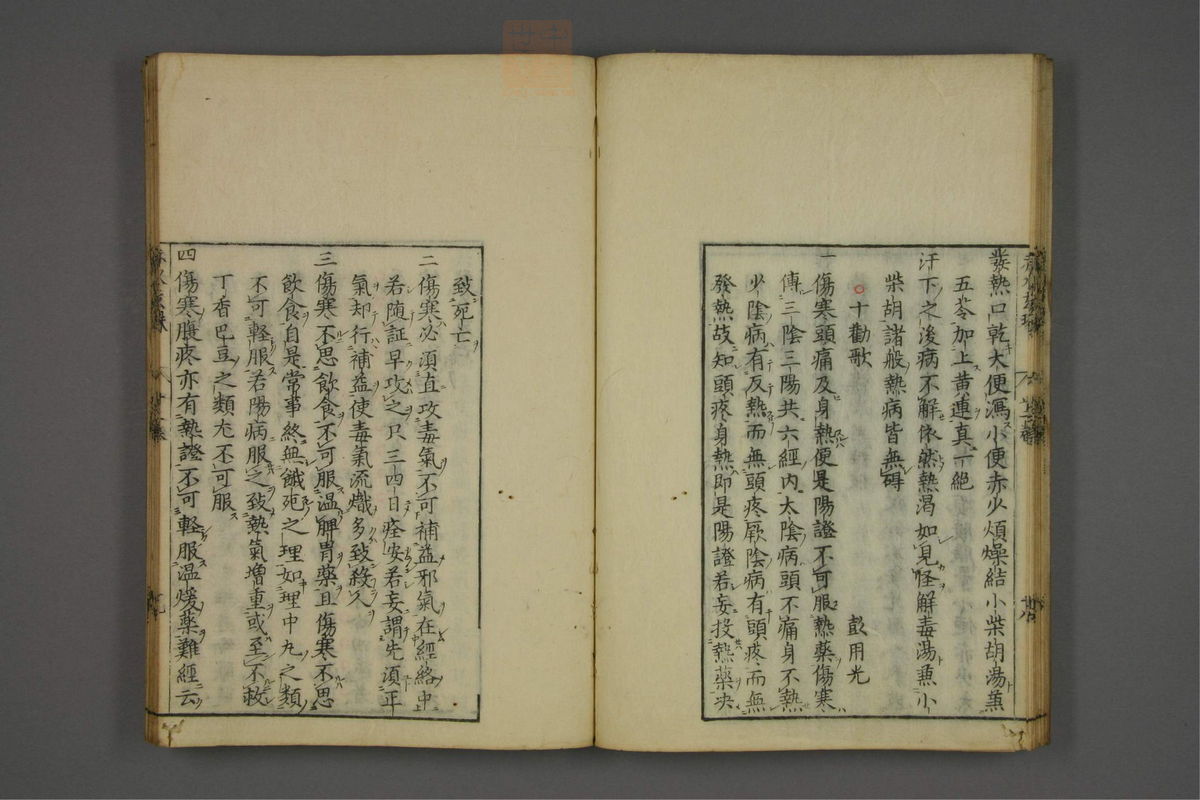 發熱口乾大便瀉小便赤少煩燥結小柴胡湯兼
五苓加上黄連真一絕
汗下之後病不解依然熱渴如見怪解毒湯兼小
柴胡諸般熱病皆無礙
十勸歌 彭用光
一傷寒頭痛及身熱便是陽證不可服熱藥傷寒
傳三陰三陽共六經内太陰病頭不痛身不熱
少陰病有反熱而無頭疼厥陰病有頭疼而無
發熱故知頭疼身熱即是陽證若妄投熱藥决
致死亡
二傷寒必須直攻毒氣不可補益邪氣在經絡中
若随証早攻之只三四日痊安若妄謂先須正
氣却行補益使毒氣流熾多致殺人
三傷寒不思飲食不可服温脾胃藥且傷寒不思
飲食自是常事終無餓死之理如理中丸之類
不可軽服若陽病服之致熱氣增重或至不救
丁香巴豆之類尤不可服
四傷寒腹疼亦有熱證不可軽服温煖藥難經云